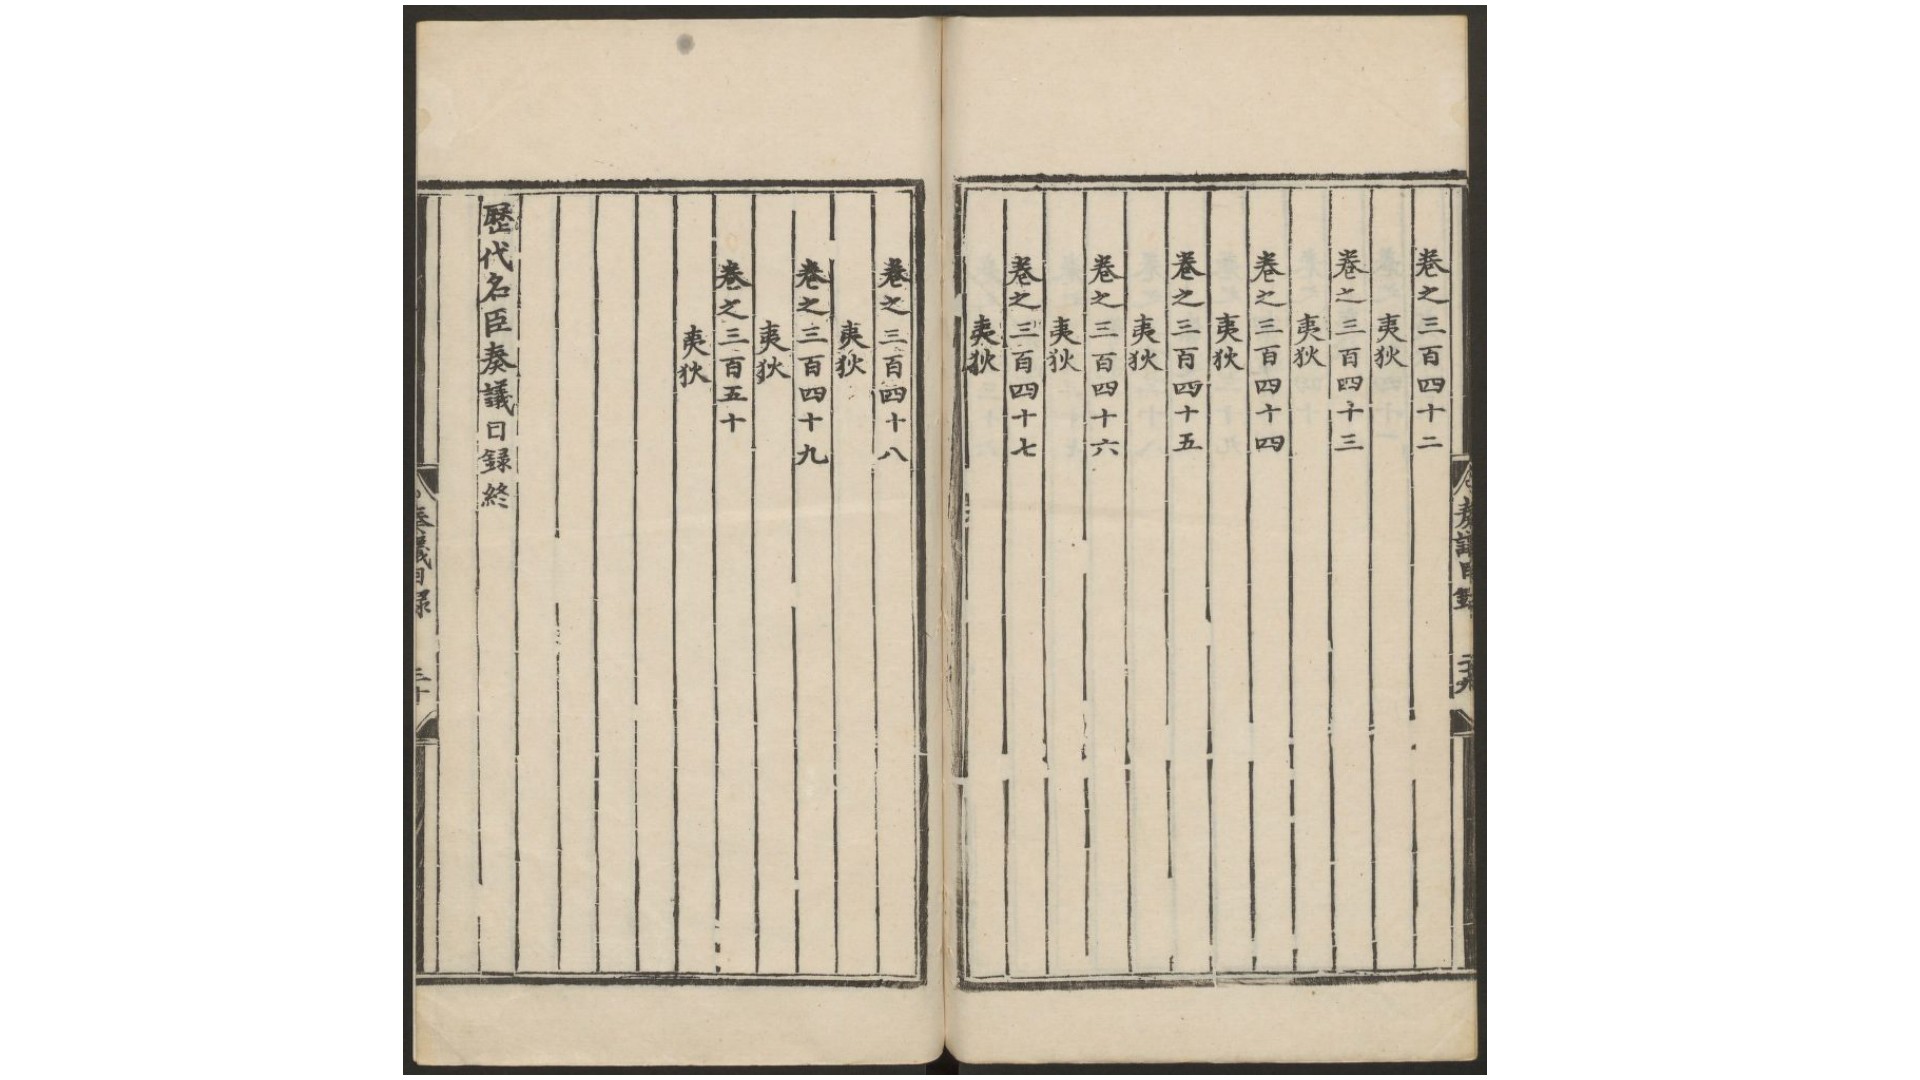 卷之三百四十二
夷狄
卷之三百四十三
夷狄
卷之三百四十四
夷狄
卷之三百四十五
夷狄
卷之三百四十六
夷狄
卷之三百四十七
夷狄
卷之三百四十八
夷狄
卷之三百四十九
夷狄
卷之三百五十
夷狄
歷代名臣奏議目錄終
奏議目錄
三十